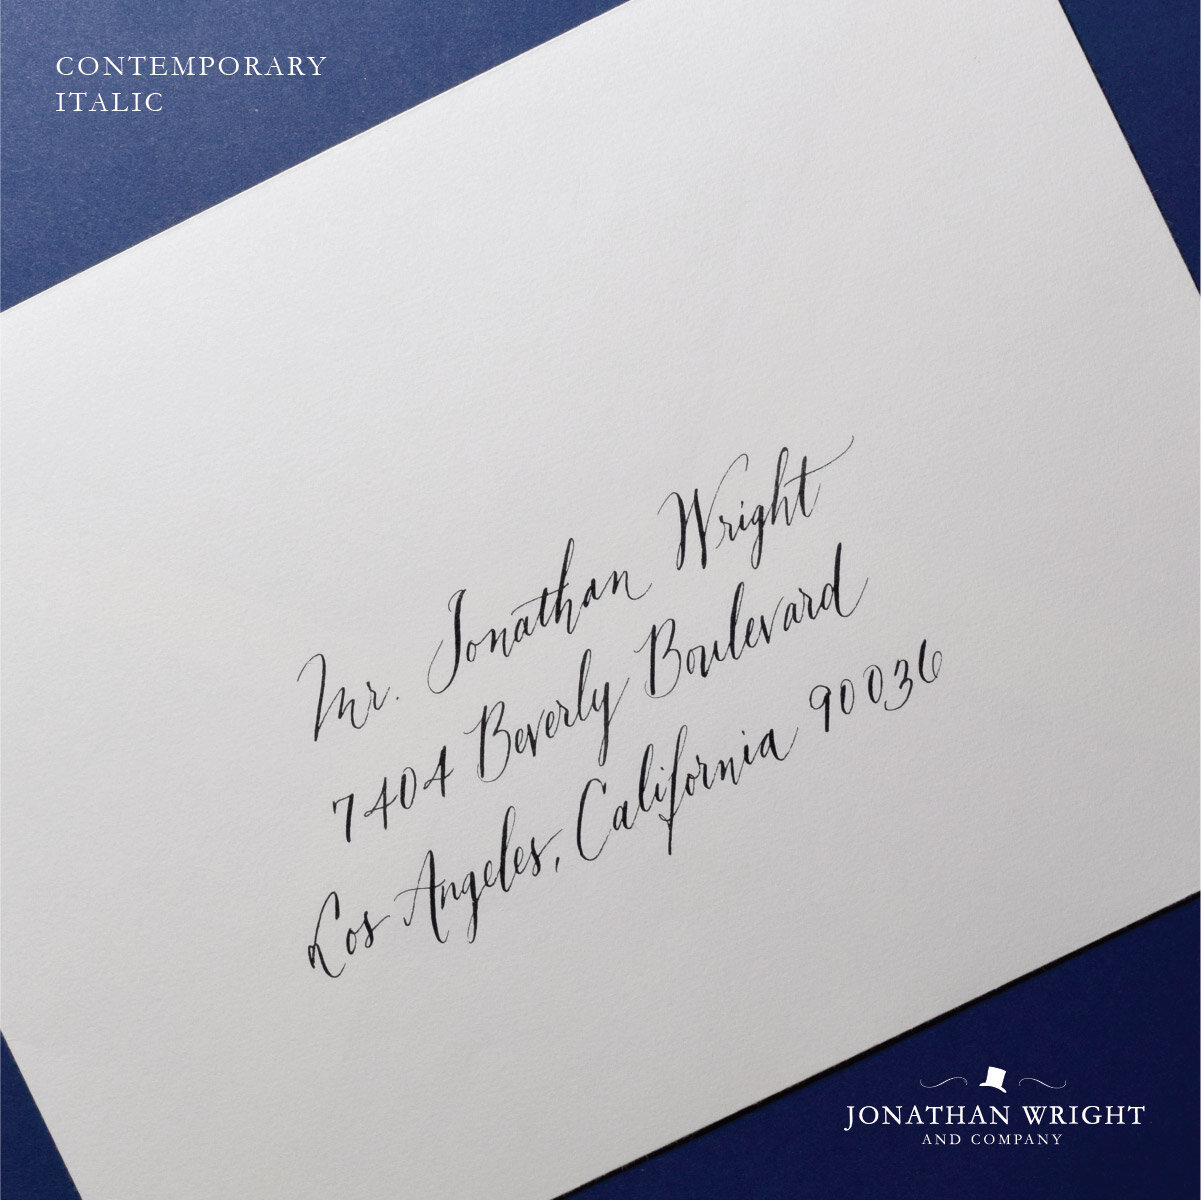 CONTEMPORARY
ITALIC
Mr. Jonathan Wright
7404 Beverly Boulevard
Los Angeles, California 90036
JONATHAN WRIGHT
AND COMPANY